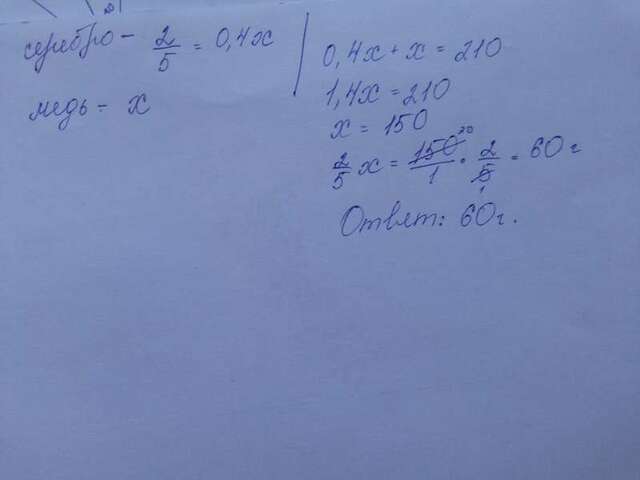 серебро - 2/5 = 0,4x
медь - x
0,4x + x = 210
1,4x = 210
x = 150
2/5 x = 150/1 · 2/5 = 60 г
30
1
Ответ: 60 г.